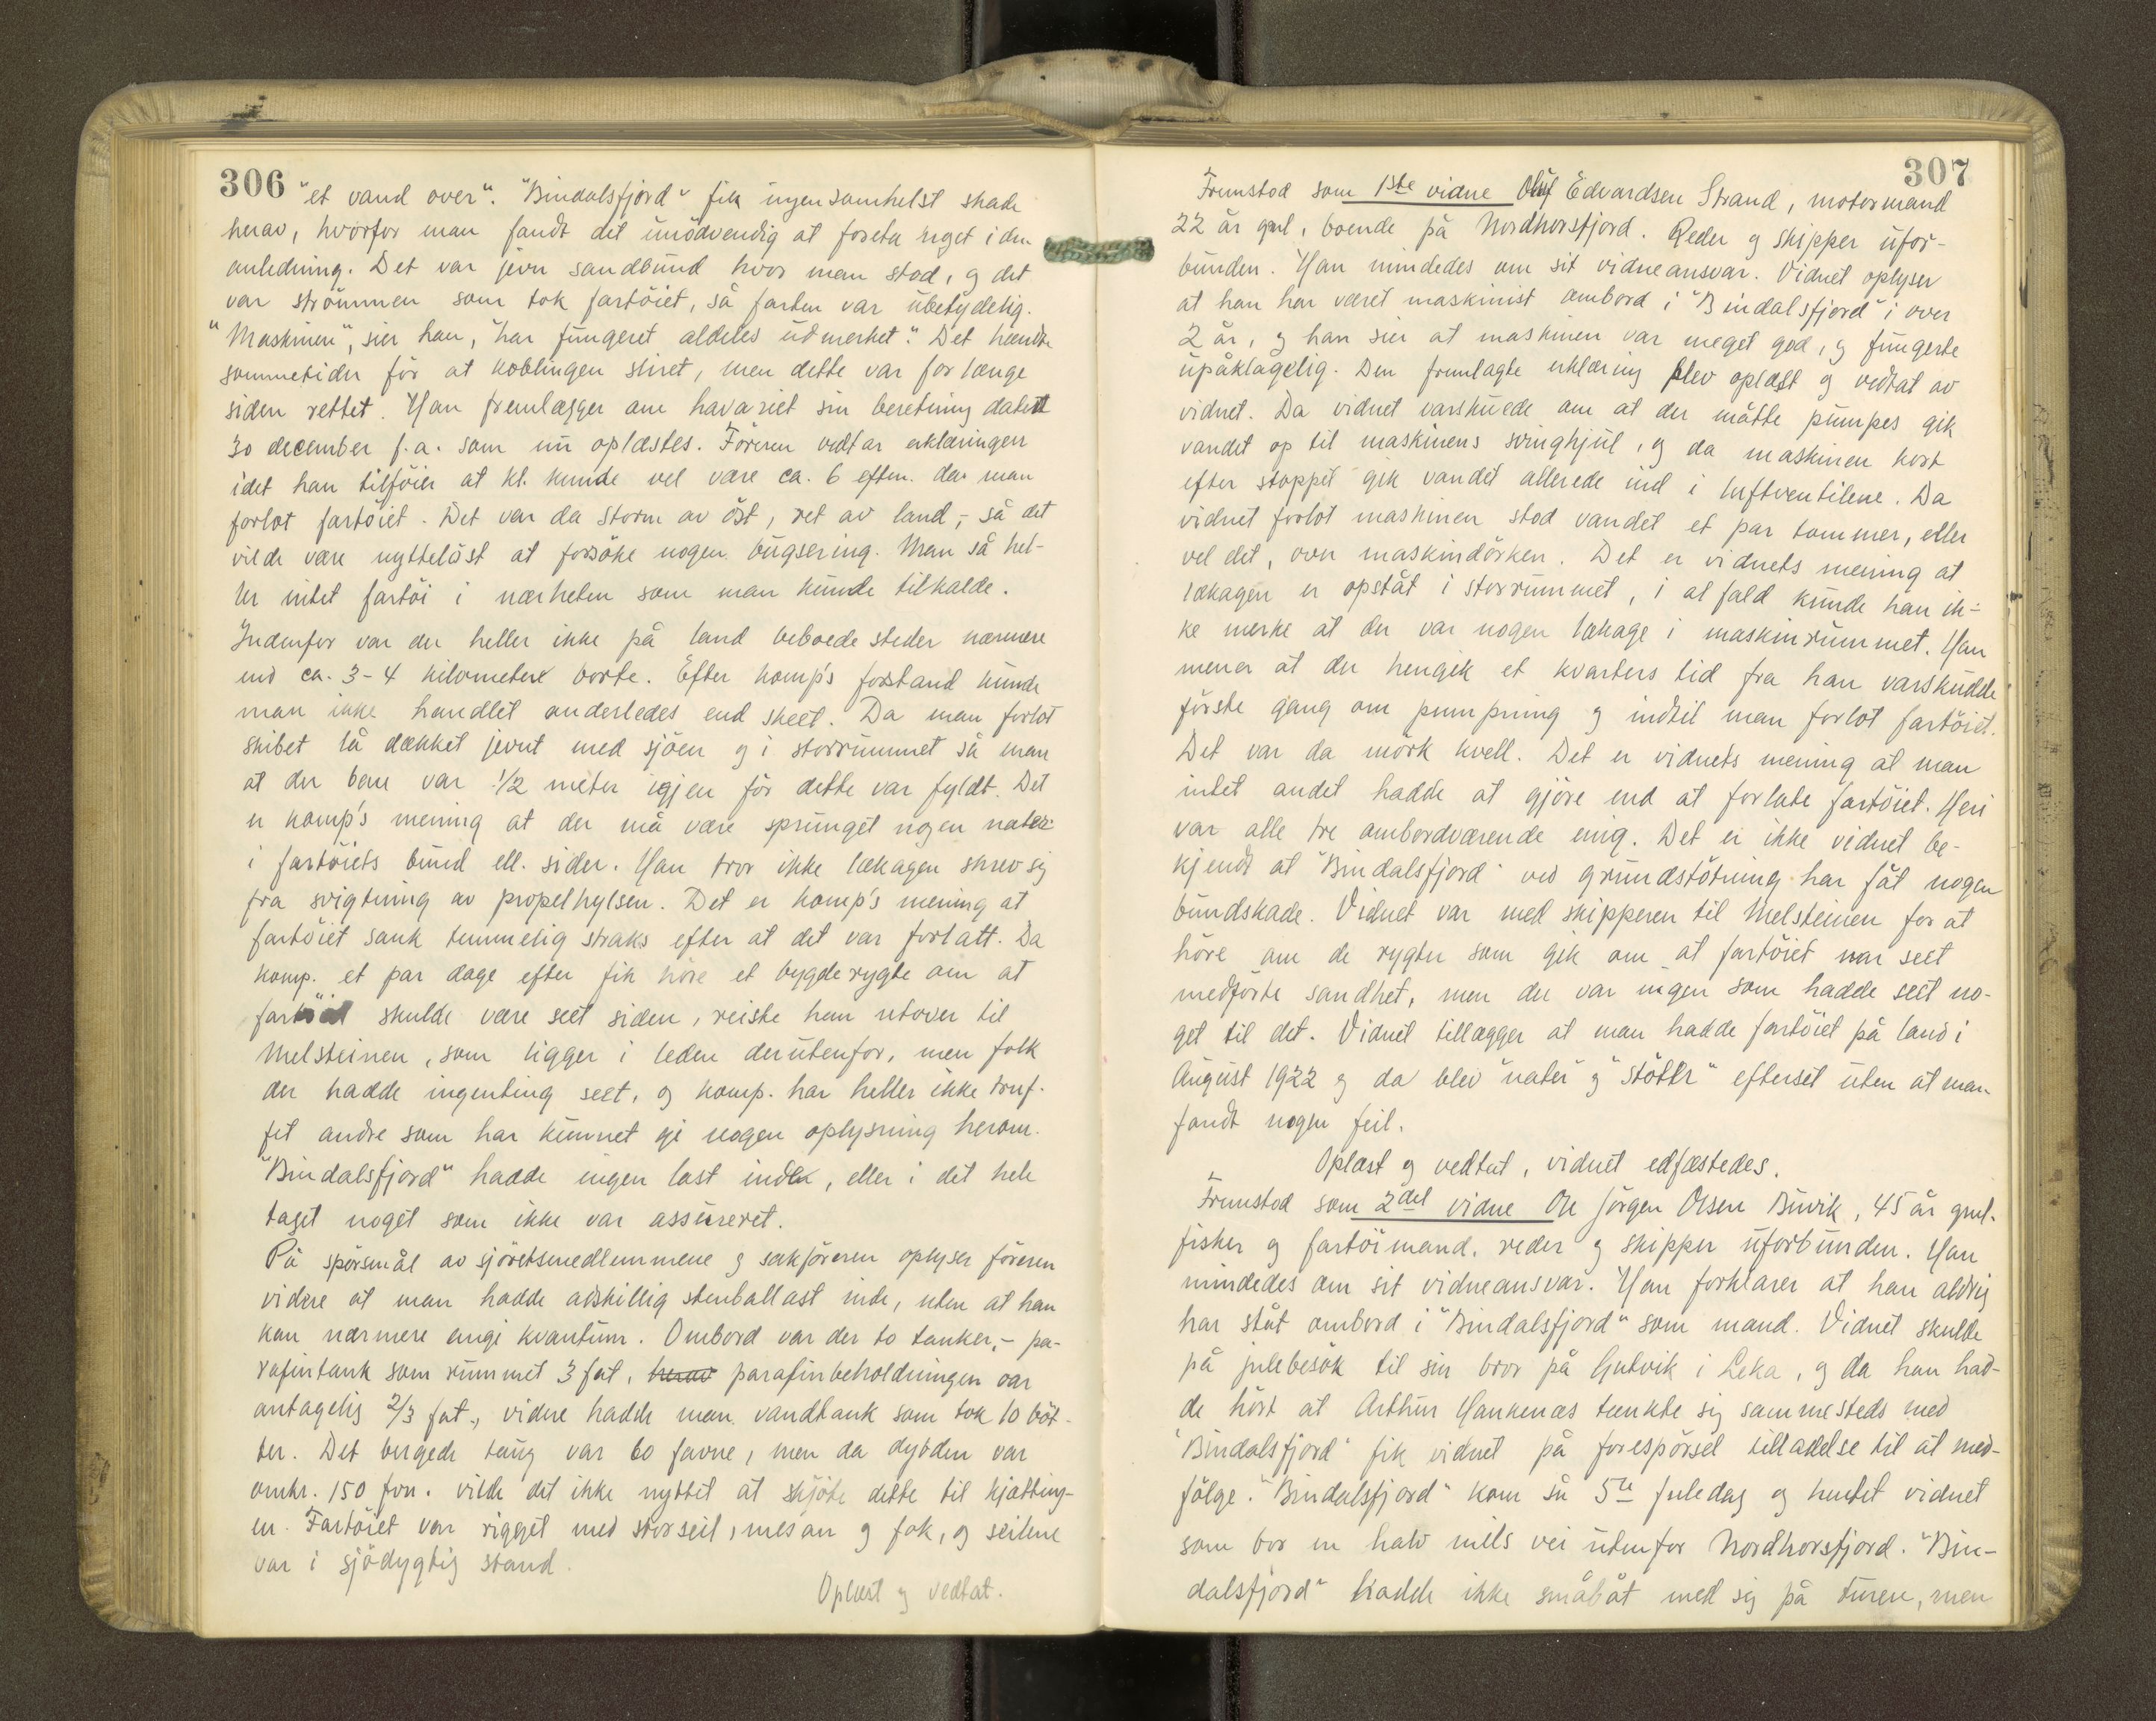 306
"et vand over". "Bindalsfjord" fik ingensomhelst skade
herav, hvorfor man fandt det unödvendig at foreta noget i den
anledning. Det var jevn sandbund hvor man stod, og det
var strömmen som tok fartöiet, så farten var ubetydelig.
"Maskinen", sier han, "har fungeret aldeles udmerket". Det hændte
sommetider för at koblingen sluret, men dette var for længe
siden rettet. Han fremlægger om havariet sin beretning datert
30 december f.a. som nu oplæstes. Föreren vedtar erklæringen
idet han tilföier at kl. kunde vel være ca. 6 eftm. da man
forlot fartöiet. Det var da storm av öst, ret av land, - så det
vilde være nyttelöst at forsöke nogen bugsering. Man så hel-
ler intet fartöi i nærheten som man kunde tilkalde.
Indenfor var der heller ikke på land beboede steder nærmere
end ca. 3-4 kilometer borte. Efter komp's forstand kunde
man ikke handlet anderledes end skeet. Da man forlot
skibet lå dækket jevnt med sjöen og i storrummet så man
at der bare var 1/2 meter igjen för dette var fyldt. Det
er komp's mening at der må være sprunget nogen nater
i fartöiets bund ell. sider. Han tror ikke lækagen skrev sig
fra svigtning av propelhylsen. Det er komp's mening at
fartöiet sank temmelig straks efter at det var forlatt. Da
komp. et par dage efter fik höre et bygderygte om at
fartöiet skulde være seet siden, reiste han utover til
Melsteinen, som ligger i leden derutenfor, men folk
der hadde ingenting seet, og komp. har heller ikke truf-
fet andre som har kunnet gi nogen oplysning herom.
"Bindalsfjord" hadde ingen last inde, eller i det hele
taget noget som ikke var assureret.
På spörsmål av sjöretsmedlemmene og sakföreren oplyser föreren
videre at man hadde adskillig stenballast inde, uten at han
kan nærmere angi kvantum. Ombord var der to tanker, - pa-
rafintank som rummet 3 fat, herav parafinbeholdningen var
antagelig 2/3 fat, videre hadde man vandtank som tok 10 böt-
ter. Det bergede taug var 60 favne, men da dybden var
omkr. 150 fvn. vilde det ikke nyttet at skjöte dette til kjætting-
en. Fartöiet var rigget med storseil, mesan og fok, og seilene
var i sjödygtig stand.
Oplæst og vedtat.
307
Fremstod som 1ste vidne Oluf Edvardsen Strand, motormand
22 år gml, boende på Nordhorsfjord. Reder og skipper ufor-
bunden. Han mindedes om sit vidneansvar. Vidnet oplyser
at han har været maskinist ombord i "Bindalsfjord" i over
2 år, og han sier at maskinen var meget god, og fungerte
upåklagelig. Den fremlagte erklæring blev oplæst og vedtat av
vidnet. Da vidnet varskuede om at der måtte pumpes gik
vandet op til maskinens svinghjul, og da maskinen kort
efter stoppet gik vandet allerede ind i luftventilene. Da
vidnet forlot maskinen stod vandet et par tommer, eller
vel det, over maskindörken. Det er vidnets mening at
lækagen er opståt i storrummet, i al fald kunde han ik-
ke merke at der var nogen lækage i maskinrummet. Han
mener at der hengik et kvarters tid fra han varskudde
förste gang om pumpning og indtil man forlot fartöiet.
Det var da mörk kvell. Det er vidnets mening at man
intet andet hadde at gjöre end at forlate fartöiet. Heri
var alle tre ombordværende enig. Det er ikke vidnet be-
kjendt at "Bindalsfjord" ved grundstötning har fåt nogen
bundskade. Vidnet var med skipperen til Melsteinen for at
höre om de rygter som gik om at fartöiet var seet
medförte sandhet, men der var ingen som hadde seet no-
get til det. Vidnet tillægger at man hadde fartöiet på land i
August 1922 og da blev "nater" og "stötter" efterset uten at man
fandt nogen feil.
Oplæst og vedtat, vidnet edfæstedes.
Fremstod som 2det vidne Ole Jörgen Olsen Buvik, 45 år gml.
fisker og fartöimand, reder og skipper uforbunden. Han
mindedes om sit vidneansvar. Han forklarer at han aldrig
har ståt ombord i "Bindalsfjord" som mand. Vidnet skulde
på julebesök til sin bror på Gutvik i Leka, og da han had-
de hört at Arthur Hankenæs tænkte sig sammesteds med
"Bindalsfjord" fik vidnet på forespörsel tilladelse til at med-
fölge. "Bindalsfjord" kom så 5te juledag og hentet vidnet
som bor en halv mils vei utenfor Nordhorsfjord. "Bin-
dalsfjord" hadde ikke småbåt med sig på turen, men